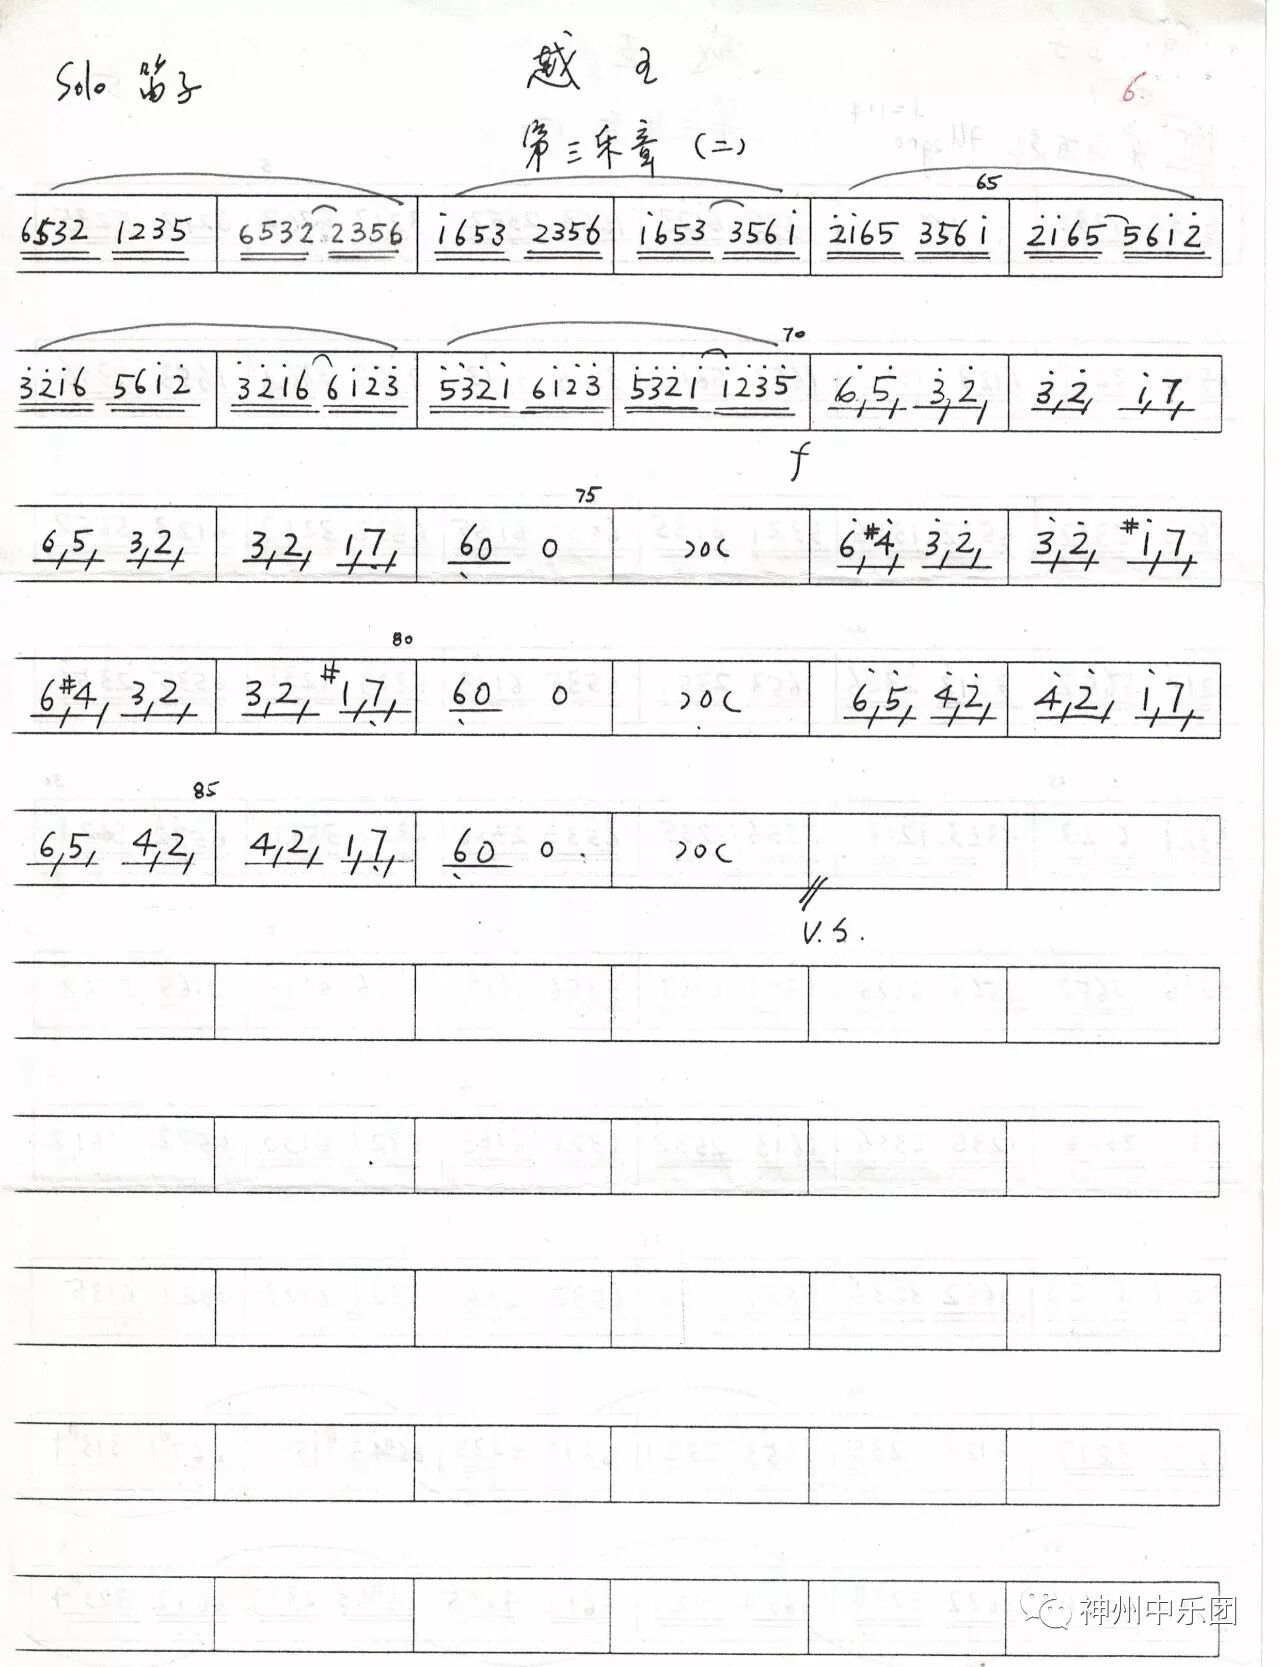 Solo 笛子
越王
6
第三乐章 (二)
65
6532 1235 | 6532 2356 | i653 2356 | i653 356i | 2̇i65 356i | 2̇i65 56i2̇
70
3̇2̇i6 56i2 | 3̇2̇i6 6i2̇3̇ | 5̇3̇2̇i 6i2̇3̇ | 5̇3̇2̇i i2̇3̇5̇ | 6̇,5̇, 3̇,2̇, | 3̇,2̇, i,7,
f
75
6,5, 3,2, | 3,2, 1,7̣, | 6̣0 0 | | 6̇,#4̇, 3̇,2̇, | 3̇,2̇, #i,7,
80
6,#4, 3,2, | 3,2, #1,7̣, | 6̣0 0 | | 6̇,5̇, 4̇,2̇, | 4̇,2̇, i,7,
85
6,5, 4,2, | 4,2, 1,7̣, | 6̣0 0 |
V.S.
神州中乐团